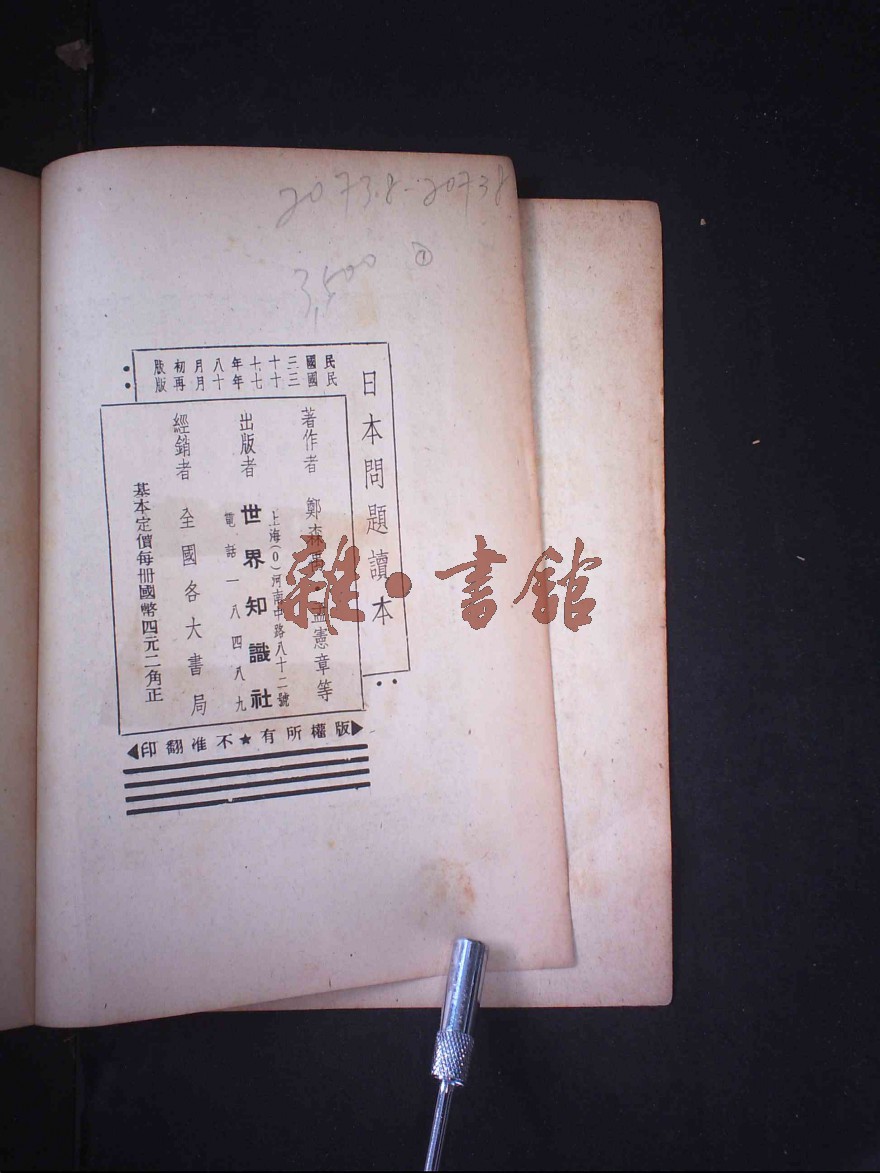 2073.8-20738
3,500 ①
日本問題讀本
民國三十七年八月初版
民國三十七年十月再版
著作者 鄭森禹 孟憲章等
出版者 世界知識社
上海(0)河南中路八十二號
電話一八四八九
經銷者 全國各大書局
基本定價每冊國幣四元二角正
版權所有★不准翻印
雜·書館